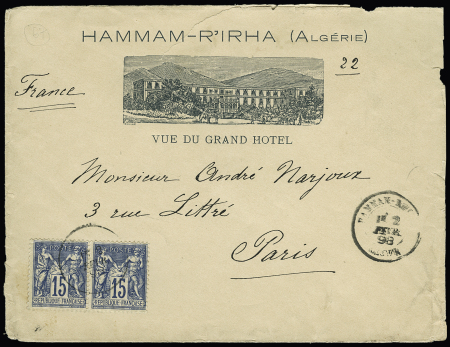 HAMMAM-R'IRHA (ALGÉRIE)
22
France
VUE DU GRAND HOTEL
Monsieur André Narjoux
3 rue Littré
Paris
POSTE
15
RÉPUBLIQUE FRANÇAISE
POSTE
15
RÉPUBLIQUE FRANÇAISE
2
98